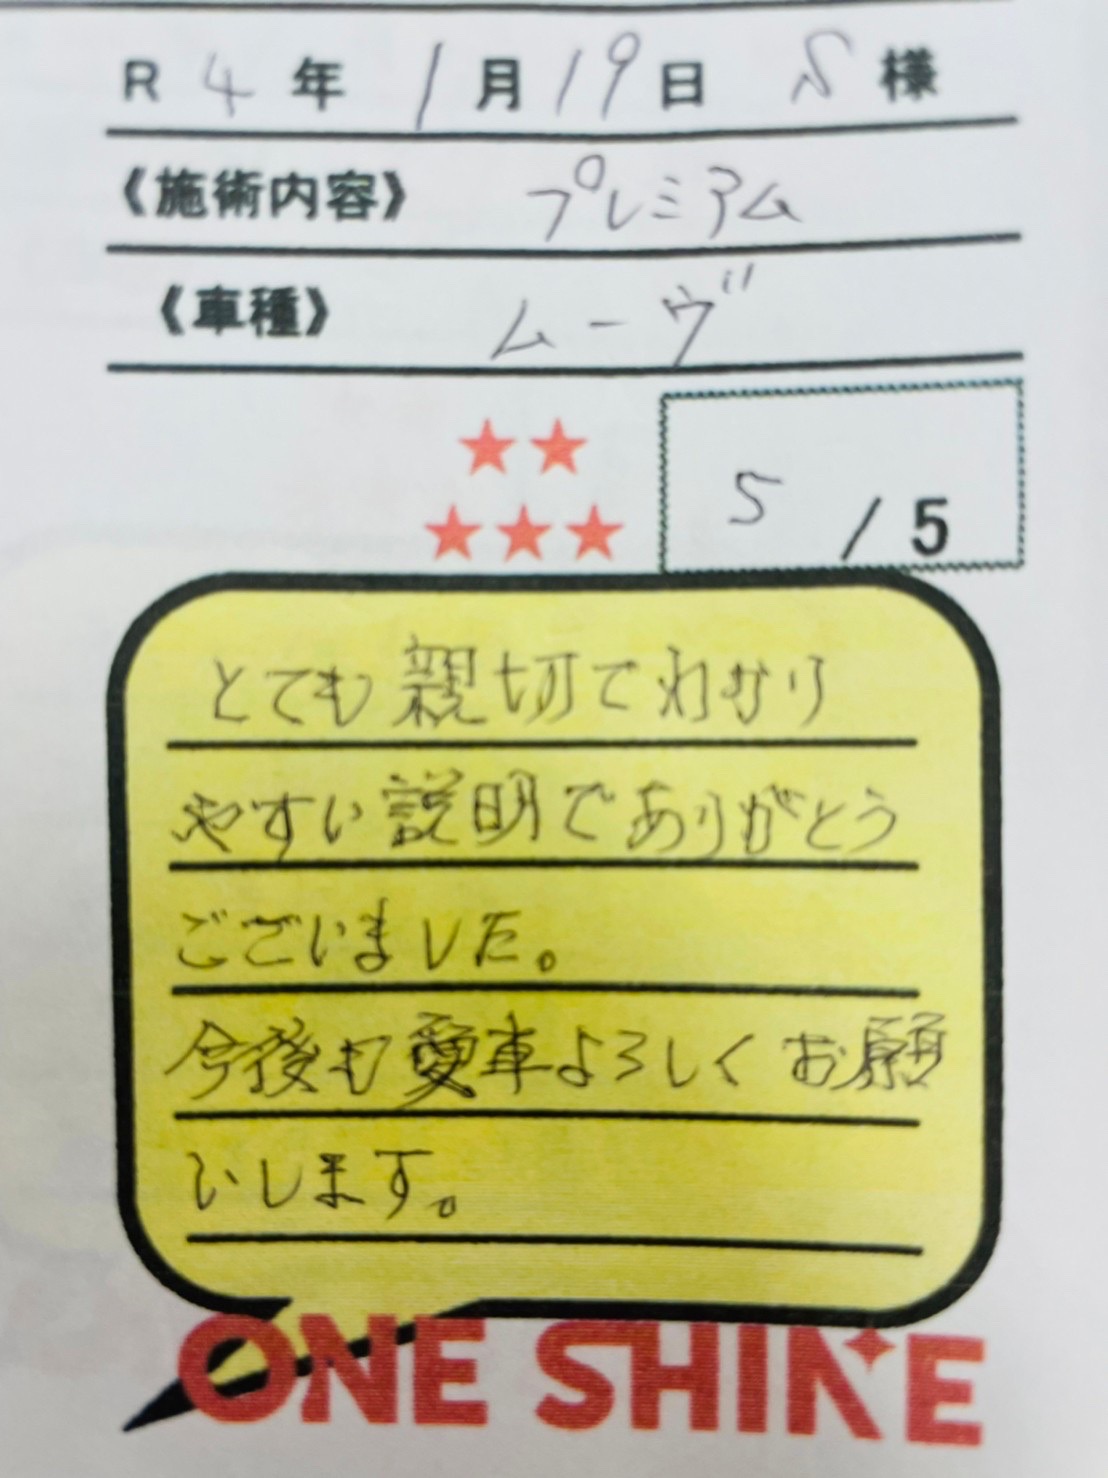 R 4 年 1 月 19 日 S 様
《施術内容》 プレミアム
《車種》 ムーヴ
★★
★★★
5 / 5
とても親切でわかり
やすい説明でありがとう
ございました。
今後も愛車よろしくお願
いします。
ONE SHINE